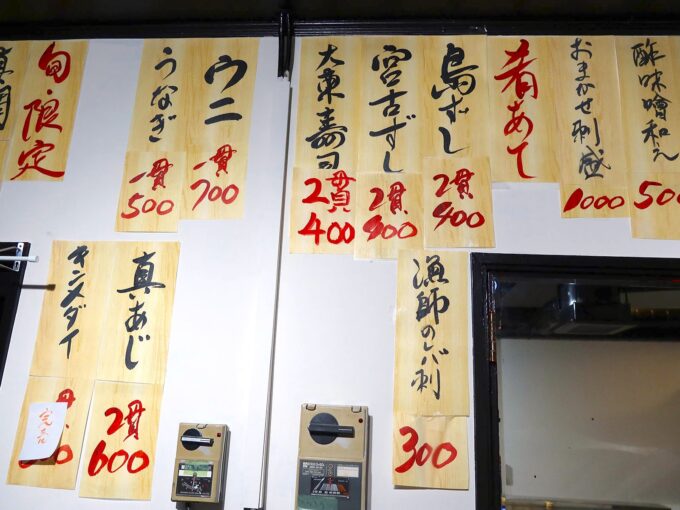 酢味噌和え
500
おまかせ刺盛
1000
肴あて
島ずし
2貫
400
宮古ずし
2貫
400
大東壽司
2貫
400
ウニ
一貫
700
うなぎ
一貫
500
旬限定
漁師のレバ刺
300
真あじ
2貫
600
キンメダイ